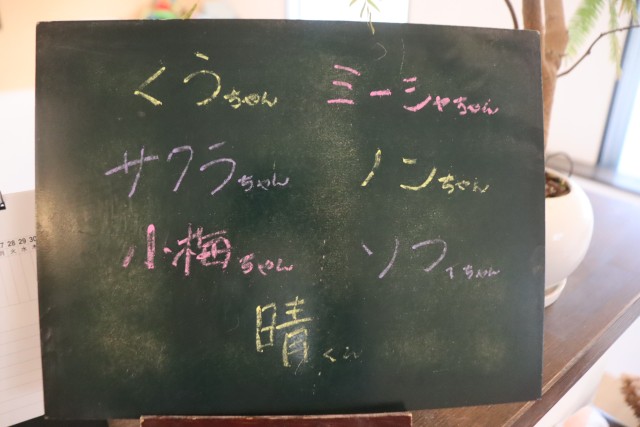 くうちゃん ミーシャちゃん
サクラちゃん ノンちゃん
小梅ちゃん ソフィちゃん
晴くん
28 29 30